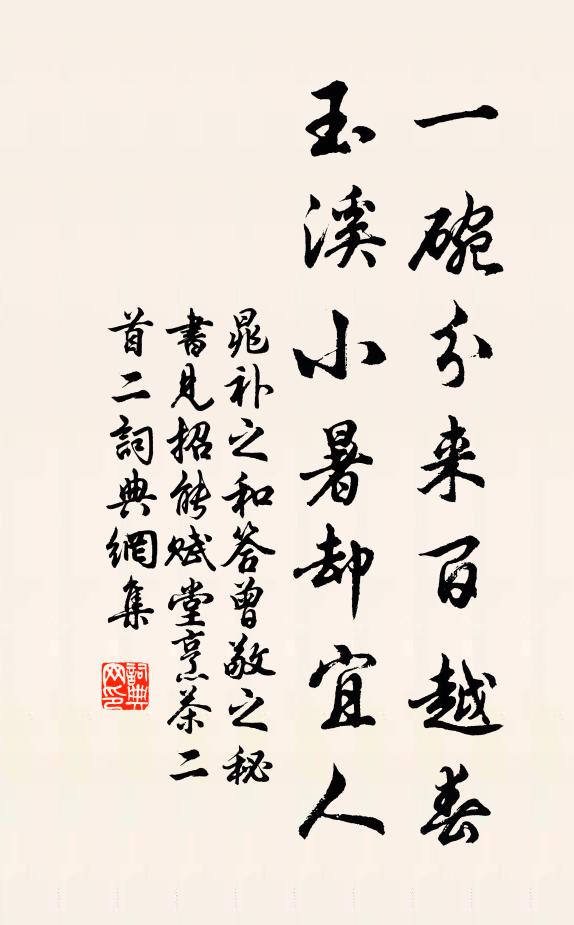 一碗分来百越春
玉溪小暑却宜人
晁补之和答曾敬之秘
書見招能赋堂烹茶二
首二詞典網集
詞典網印